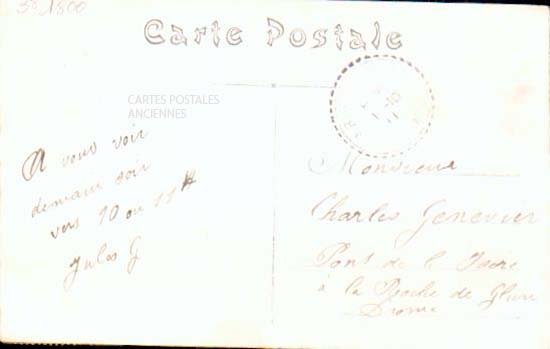 Carte Postale
CARTES POSTALES
ANCIENNES
A vous voir
demain soir
vers 10 ou 11 H
Jules G
Monsieur
Charles Genevier
Pont de l'Isère
à la Roche de Glun
Drome